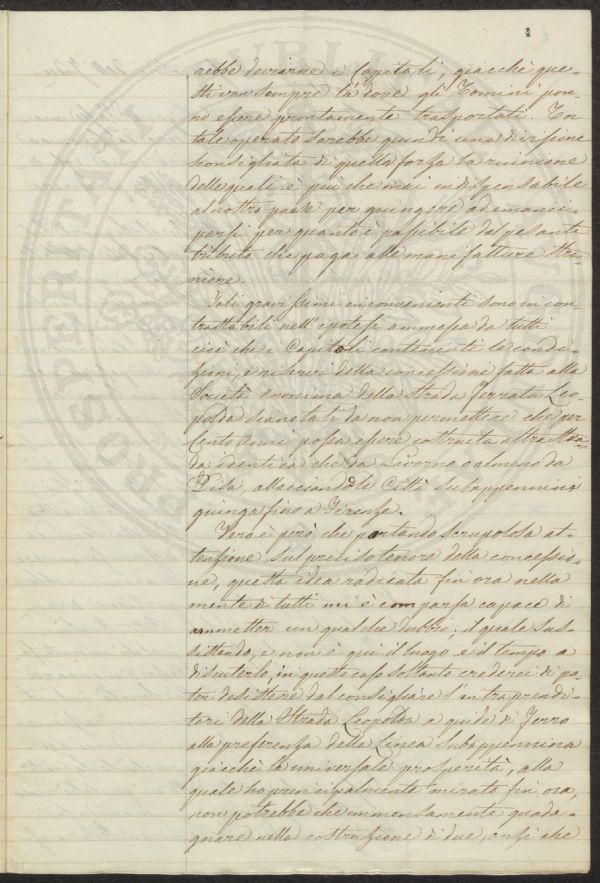 rebbe deviarne i Capitali, giacchè que-
sti van sempre là dove gli Uomini pon-
no essere prontamente trasportati. Un
tale operato sarebbe quindi una divisione
sconsigliata di quelle forze la riunione
delle quali è più che mai indispensabile
al nostro paese per giungere ad emanci-
parsi per quanto è possibile dal pesante
tributo che paga alle manifatture stra-
niere.
Tali gravissimi inconvenienti sono in con-
trastabili nell'ipotesi ammessa da tutti
cioè che i Capitoli contenenti le condi-
zioni, e riserve della concessione fatta alla
Società anonima della Strada Ferrata Leo-
polda siano tali da non permettere che per
Cento Anni possa essere costruita altra Stra-
da identica che da Livorno o almeno da
Pisa, allacciando le Città subappennine
giunga fino a Firenze.
Vero è però che portando scrupolosa at-
tenzione sul preciso tenore della concessio-
ne, questa idea radicata fin ora nella
mente di tutti mi è comparsa capace di
ammetter un qualche dubbio; il quale sus-
sistendo, e non è qui il luogo e il tempo a
discuterlo, in questo caso soltanto crederei di po-
ter desistere dal consigliare l'intraprendi-
tari della Strada Leopolda a guide di Ferro
alla preferenza della Linea Subappennina
giacchè la universale prosperità, alla
quale ho principalmente mirato fin ora,
non potrebbe che immensamente guada-
gnare nella costruzione di due, anzi che